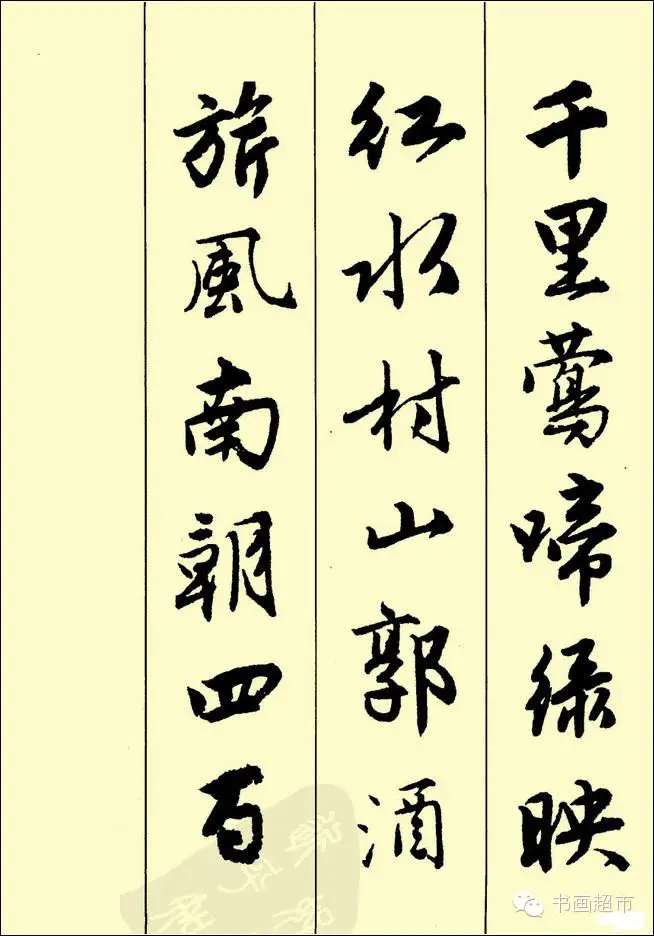 千里莺啼绿映
红水村山郭酒
旂風南朝四百
书画超市